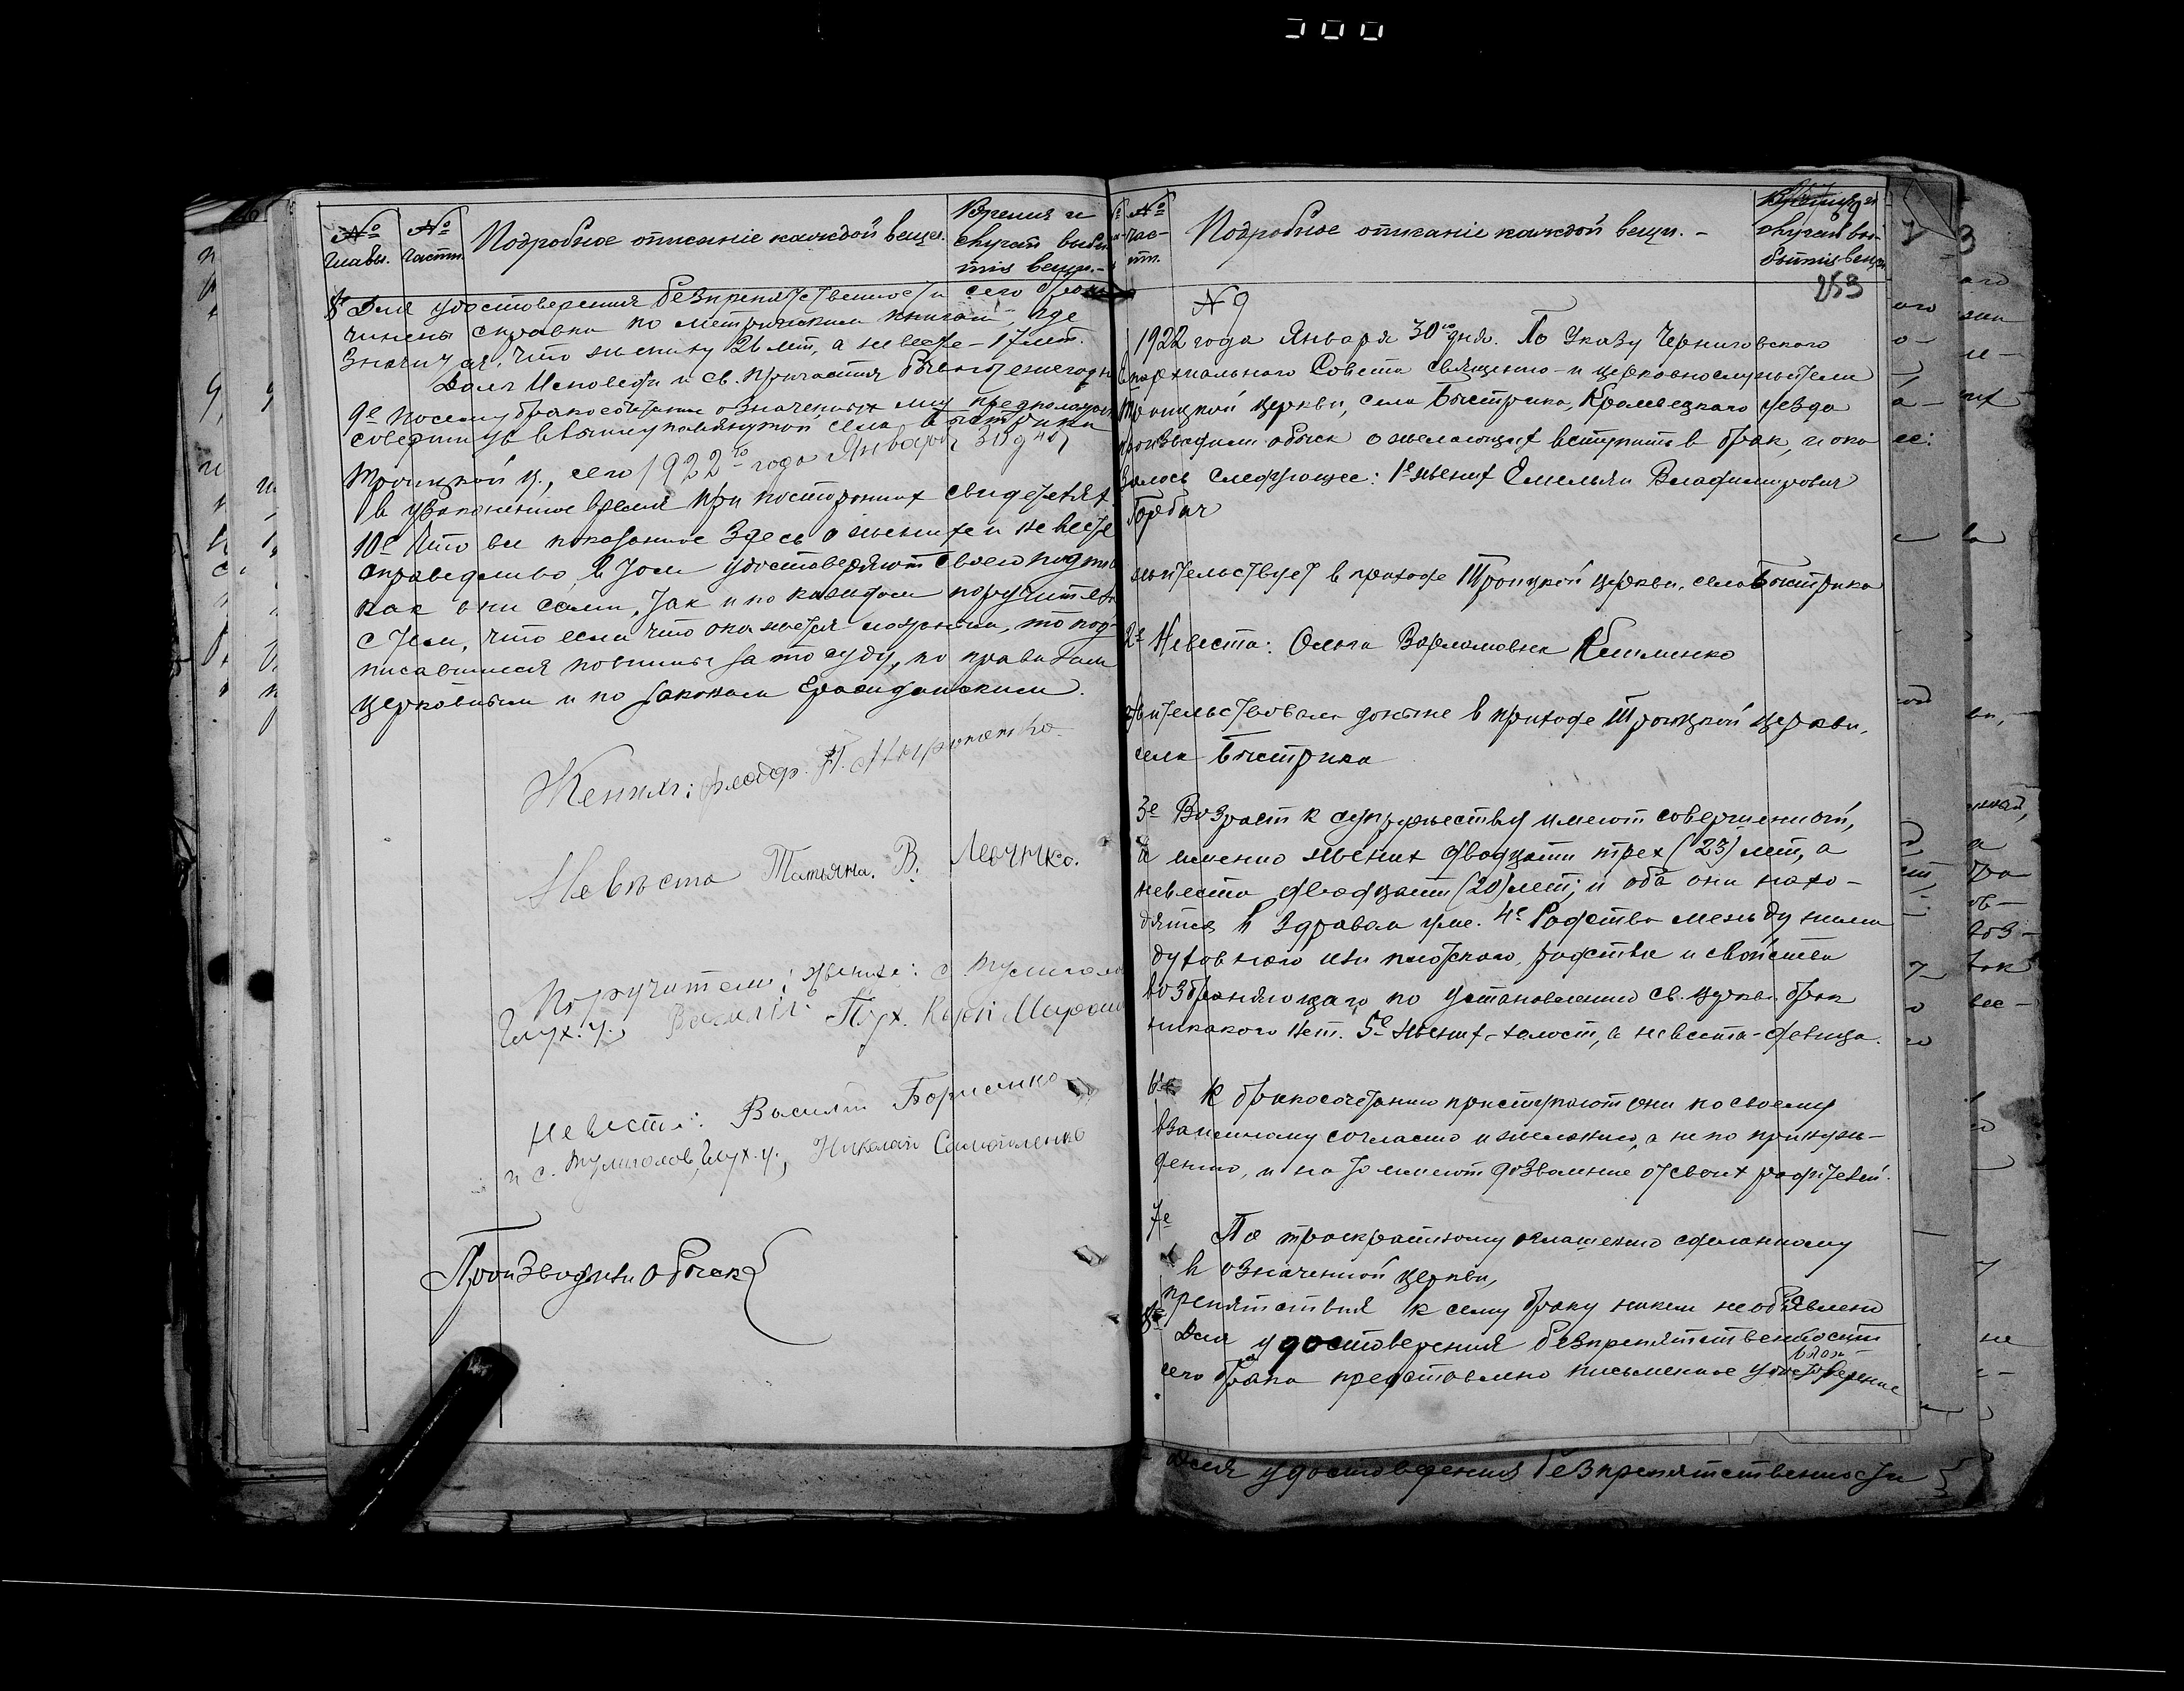 № главы.
№ части
Подробное описаніе каждой вещи.
Время и
случай выбы
тія вещи.-
8е Для удостоверения безпрепятственности сего брака
чинены справки по метрическим книгам, где
значится, что жениху 26 лет, а невесте - 17 лет.
исповеди и св. причастия бывают ежегодно
9е Посему бракосочетание означенных лиц предположено
совершить в вышеупомянутой села Быстрика
Троицкой ц., сего 1922го года Января 30 дня
в узаконенное время при посторонних свидетелях
10е Что все показанное здесь о женихе и невесте
справедливо, в том удостоверяют своею подпис
как они сами, так и по каждом поручители
с тем, что если что окажется ложным, то под-
писавшиеся повинны за то суду, по правилам
церковным и по законам Гражданским.
Жених: Федор. П. Мироненко
Невѣста Татьяна. В. Левчико.
Поручители: жениха: с. Тулиголов
Глух. у., Василій
невести: Василій Борисенко
и с. Тулиголов, Глух. у., Николай Самойленко
Производили обыск
№
час-
ти.
Подробное описаніе каждой вещи. -
случай вы-
бытія вещи
253
№ 9
1922 года Января 30го дня. По Указу Черниговского
Епархиального Совета священно- и церковнослужители
Троицкой церкви, села Быстрика, Кролевецкого уезда
производили обыск о желающих вступить в брак, и ока
залось следующее: 1е жених Емельян Владимирович
Горбач
жительствует в приходе Троицкой церкви, села Быстрика
2е Невеста: Ольга Варламовна Клименко
жительствовала доныне в приходе Троицкой церкви,
села Быстрика
3е Возраст к супружеству имеют совершенной,
а именно жених двадцати трех (23) лет, а
невеста двадцати (20) лет; и оба они нахо-
дятся в здравом уме. 4е Родства между ними
духовного или плотского родства и свойства
возбраняющаго по установлению св. церкви брак
никакого нет. 5е Жених - холост, а невеста - девица.
6е К бракосочетанию приступают они по своему
взаимному согласию и желанию, а не по принуж-
дению, и на то имеют дозволение от своих родителей.
7е По троекратному оглашению сделанному
в означенной церкви,
препятствия к сему браку никем не объявлено
8е Для удостоверения безпрепятственности
сего брака представлено письменное удостоверение
Для удостоверения безпрепятственности